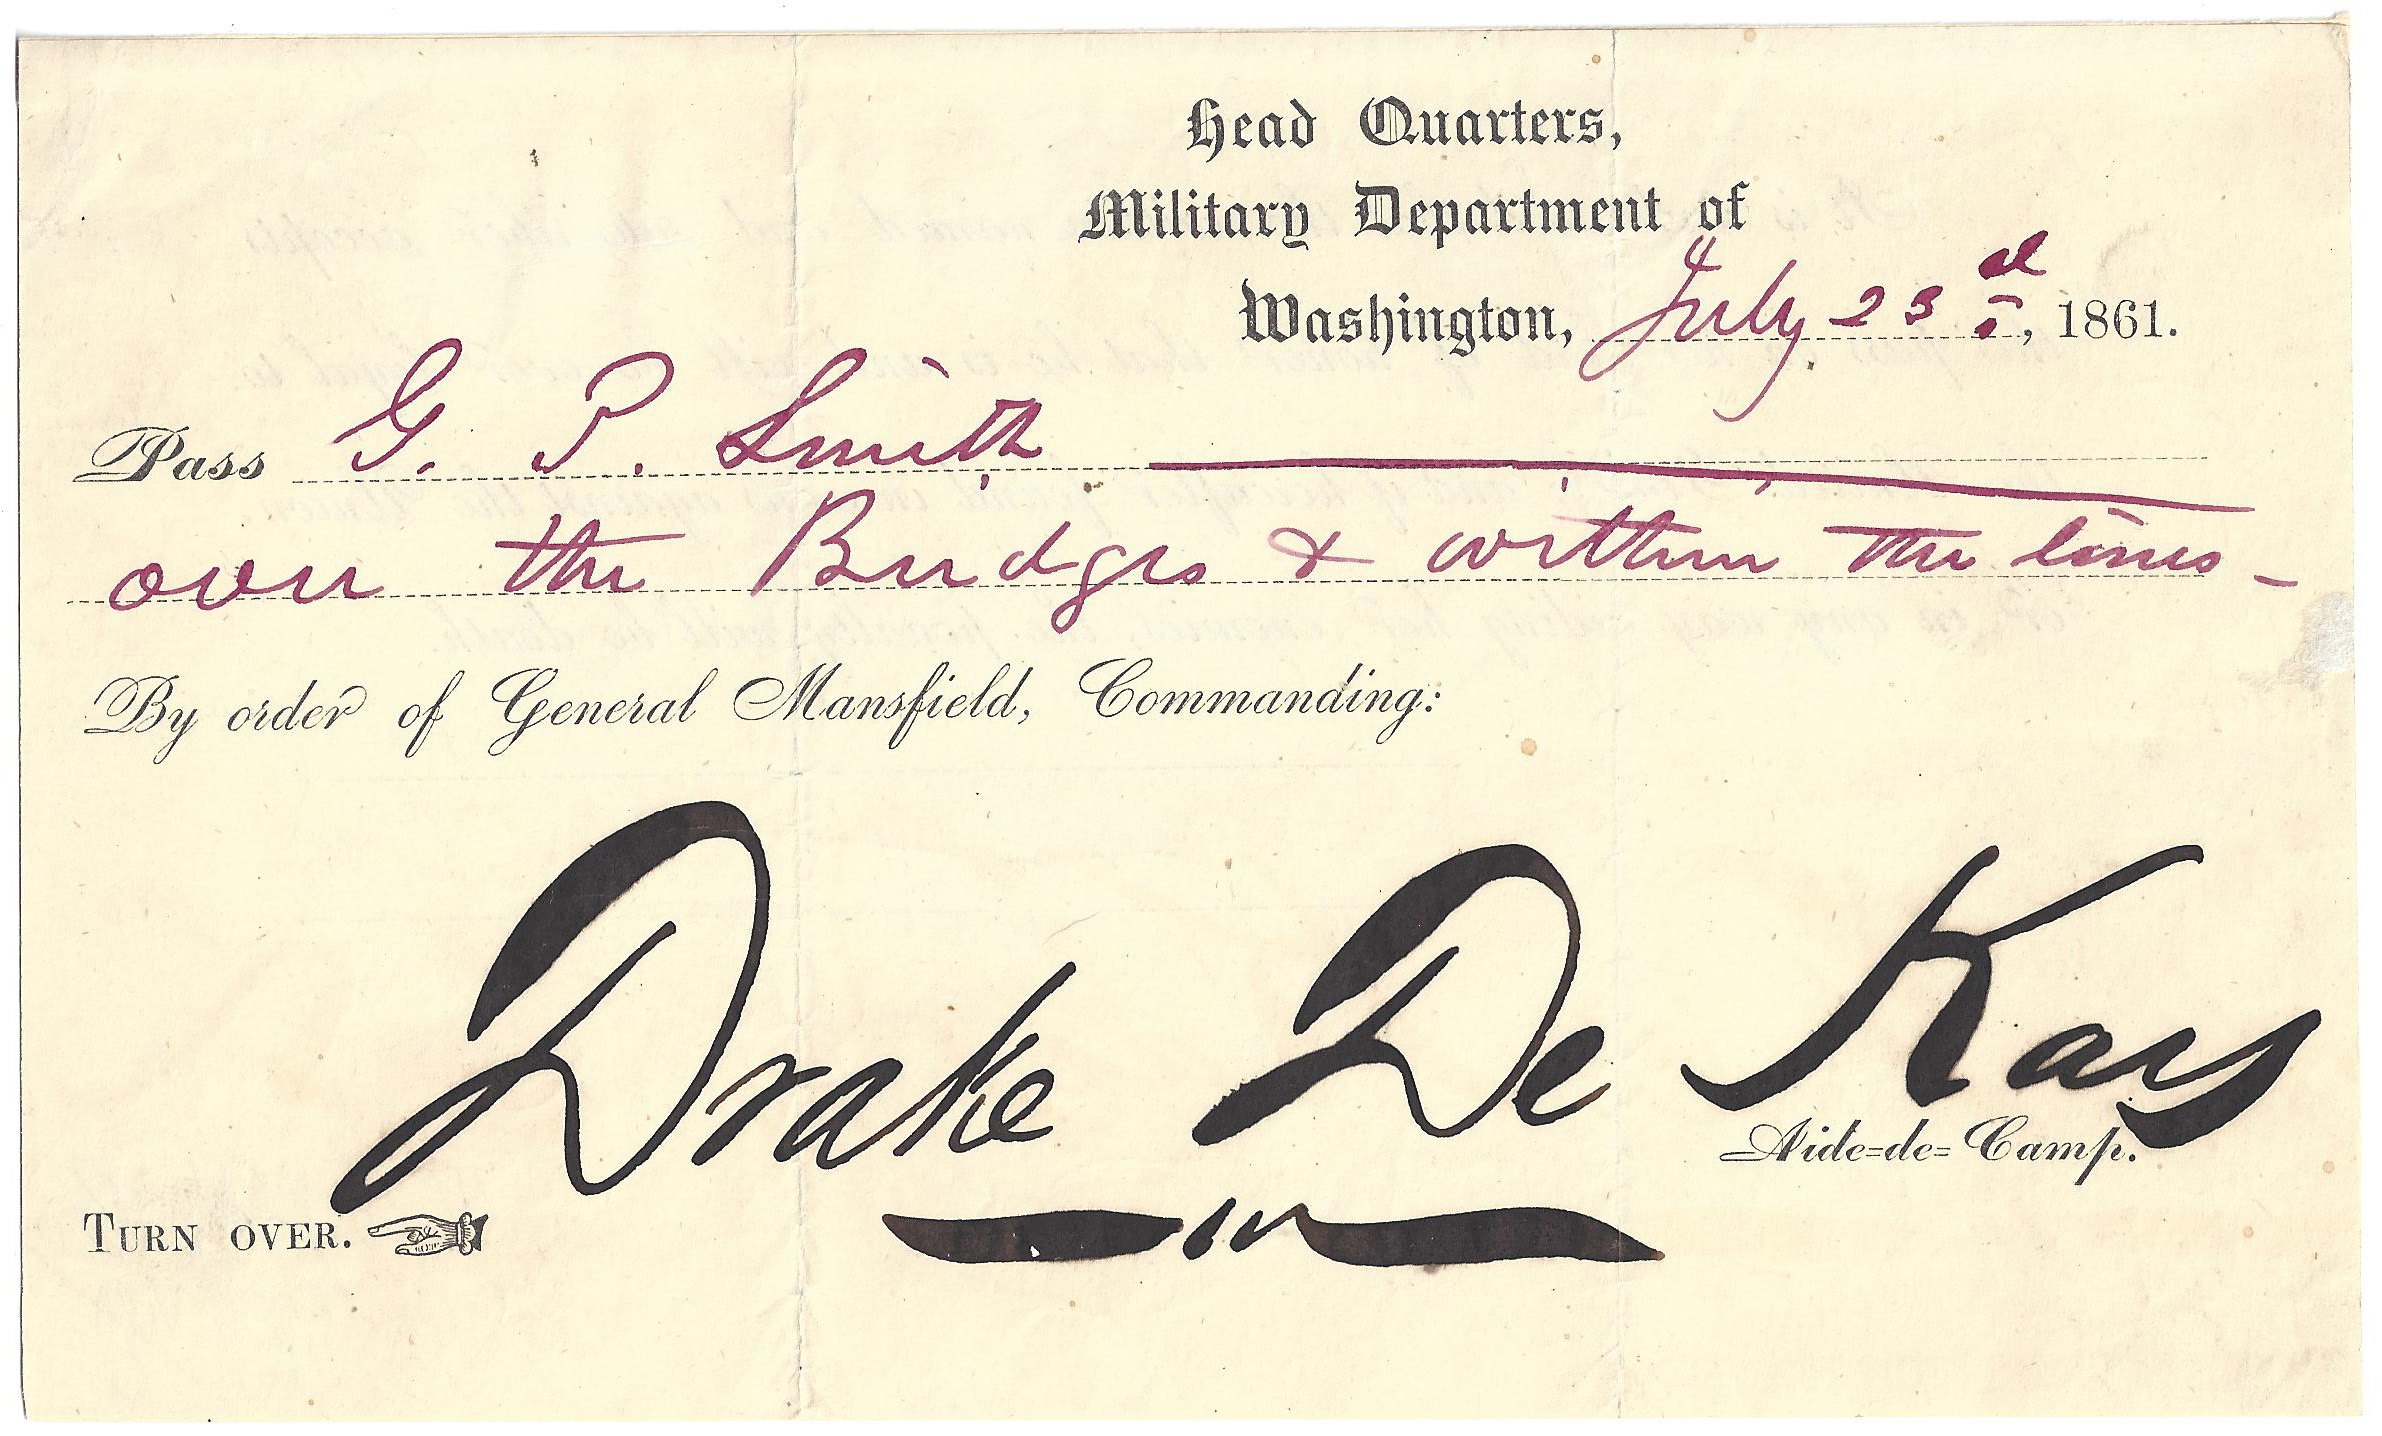 Head Quarters,
Military Department of
Washington, July 23d, 1861.
Pass G. P. Smith
over the Bridges & within the lines -
By order of General Mansfield, Commanding:
Drake De Kay
Aide-de-Camp.
TURN OVER.